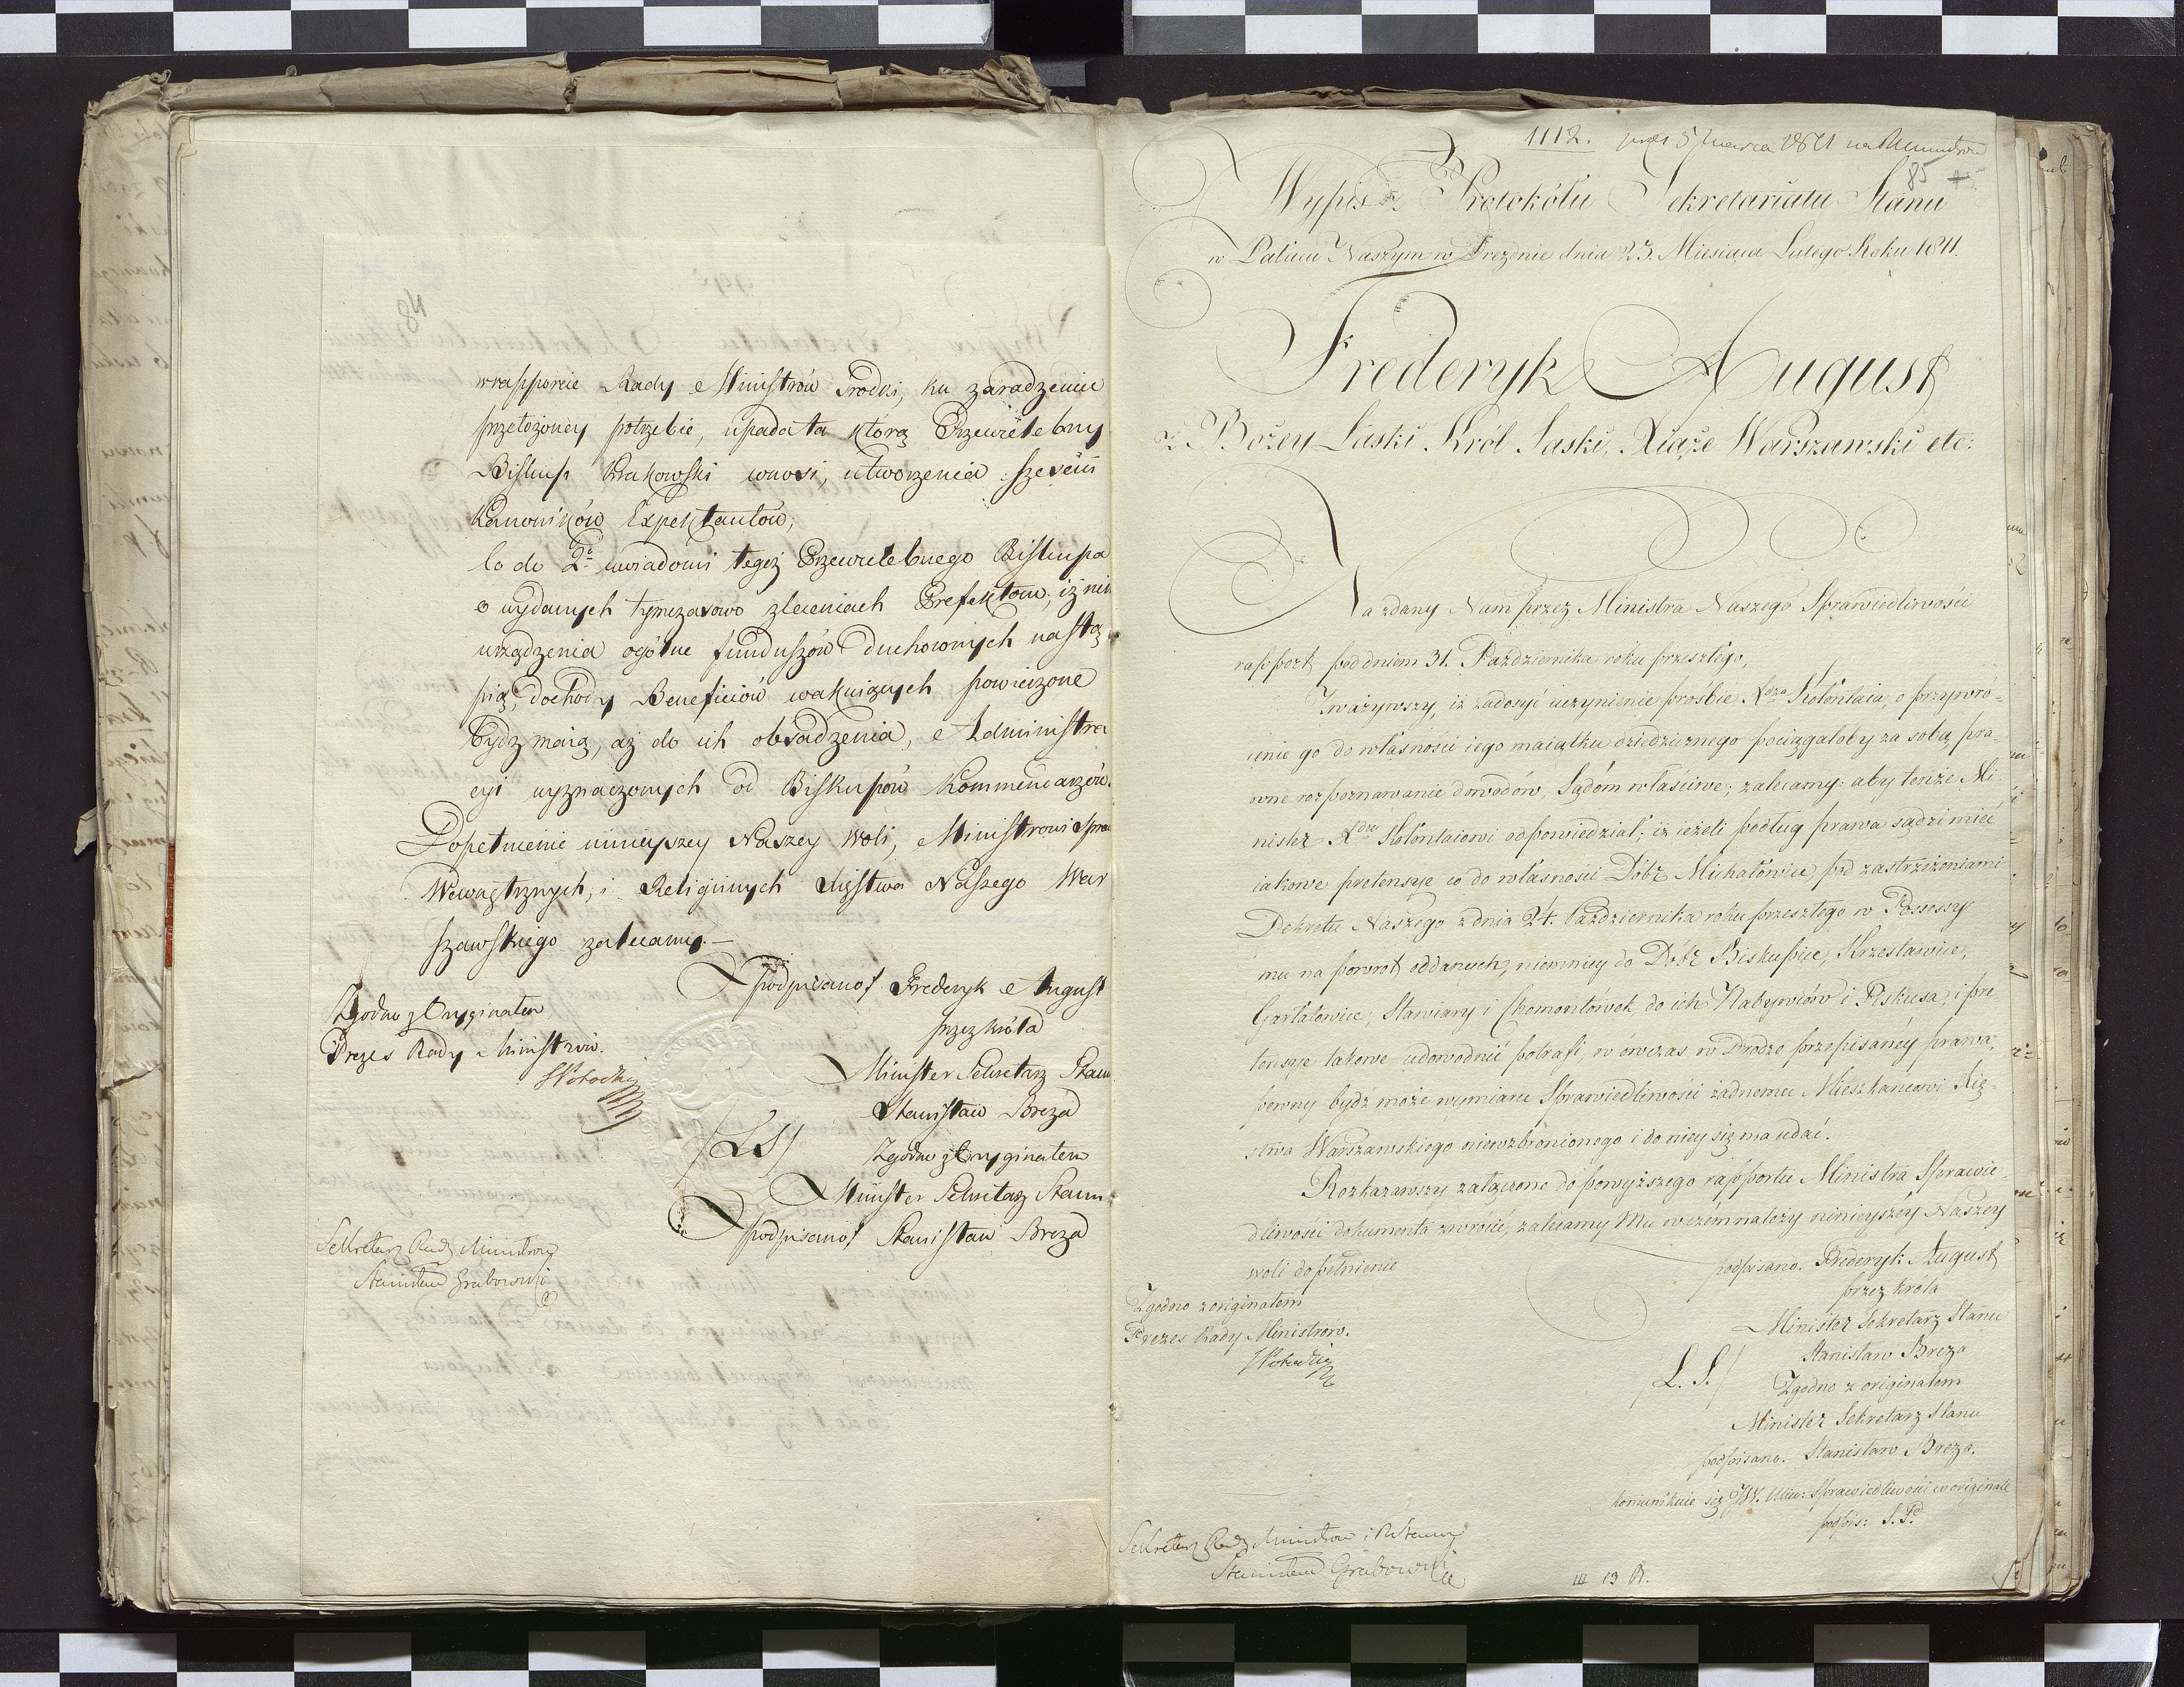 84
w rapporcie Rady Ministrów srodki, ku zaradzeniu
przełożoney potrzebie, upada ta którą Przewielebny
Biskup Krakowski wnosi, utworzenia sześciu
Kanoników Expektantów;
Co do 2º uwiadomi tegoż Przewielebnego Biskupa
o wydanych tymczasowo zleceniach Prefektom, iż nim
urządzenia ogólne funduszów duchownych nastą
pią, dochody Beneficiów wakuiących powierzone
bydź maią, aż do ich obsadzenia, Administra
cyi wyznaczonych od Biskupów Kommendarzów.
Dopełnienie ninieyszey Naszey Woli, Ministrowi Spraw
Wewnętrznych, i Religiinych Xięstwa Naszego War
szawskiego zalecamy.—
podpisano/ Frederyk August
przez Króla
Minister Sekretarz Stanu
Stanisław Breza
/LS/
Zgodno z Oryginałem
Minister Sekretarz Stanu
podpisano/ Stanisław Breza
Zgodno z Oryginałem
Prezes Rady Ministrów.
SPotocki
Sekretarz Rady Ministrów
Stanisław Grabowski
1112. 5 marca 1811
85
Wypis z Protokółu Sekretariatu Stanu
w Pałacu Naszym w Dreźnie dnia 23. Miesiąca Lutego Roku 1811.
Frederyk August
z Bożey Łaski Król Saski, Xiąże Warszawski etc:
Na zdany Nam przez Ministra Naszego Sprawiedliwości
rapport pod dniem 31. Października roku przeszłego,
Zważywszy, iż zadosyć uczynienie prośbie Xdza Kołontaia, o przywró-
cenie go do własności iego maiątku dziedzicznego pociągałoby za sobą pra-
wne rozpoznawanie dowodów, Sądom właściwe; zalecamy: aby tenże Mi-
nister Xdzu Kołontaiowi odpowiedział; iż ieżeli podług prawa sądzi mieć
iakowe pretensye co do własności Dóbr Michałowice pod zastrzeżeniami
Dekretu Naszego z dnia 24. Października roku przeszłego w Possessyą
mu na powrot oddanych, niemniey do Dóbr Biskupice, Krzesławice,
Garlałowice, Stawiany i Chomontówek, do ich Nabywców i Fiskusa, i pre
tensye takowe udowodnić potrafi, w ówczas w Drodze przepisanéy prawa,
pewny bydź może wymiaru Sprawiedliwości żadnemu Mieszkańcowi Xię-
stwa Warszawskiego niewzbronionego i do niey się ma udać.
Rozkazawszy załączone do powyższego rapportu Ministra Sprawie-
dliwości dokumenta zwrócić, zalecamy Mu w czém należy ninieyszéy Naszey
woli dopełnienie
podpisano. Frederyk August
przez Króla
Minister Sekretarz Stanu
Stanisław Breza
/L. S./
Zgodno z originałem
Minister Sekretarz Stanu
podpisano. Stanisław Breza.
Zgodno z originałem
Prezes Rady Ministrow.
SPotocki
komunikuie się JW. Min: Sprawiedliwości w originale
podpis: S. P.
Sekretarz Rady Ministrow i
Stanisław Grabowski